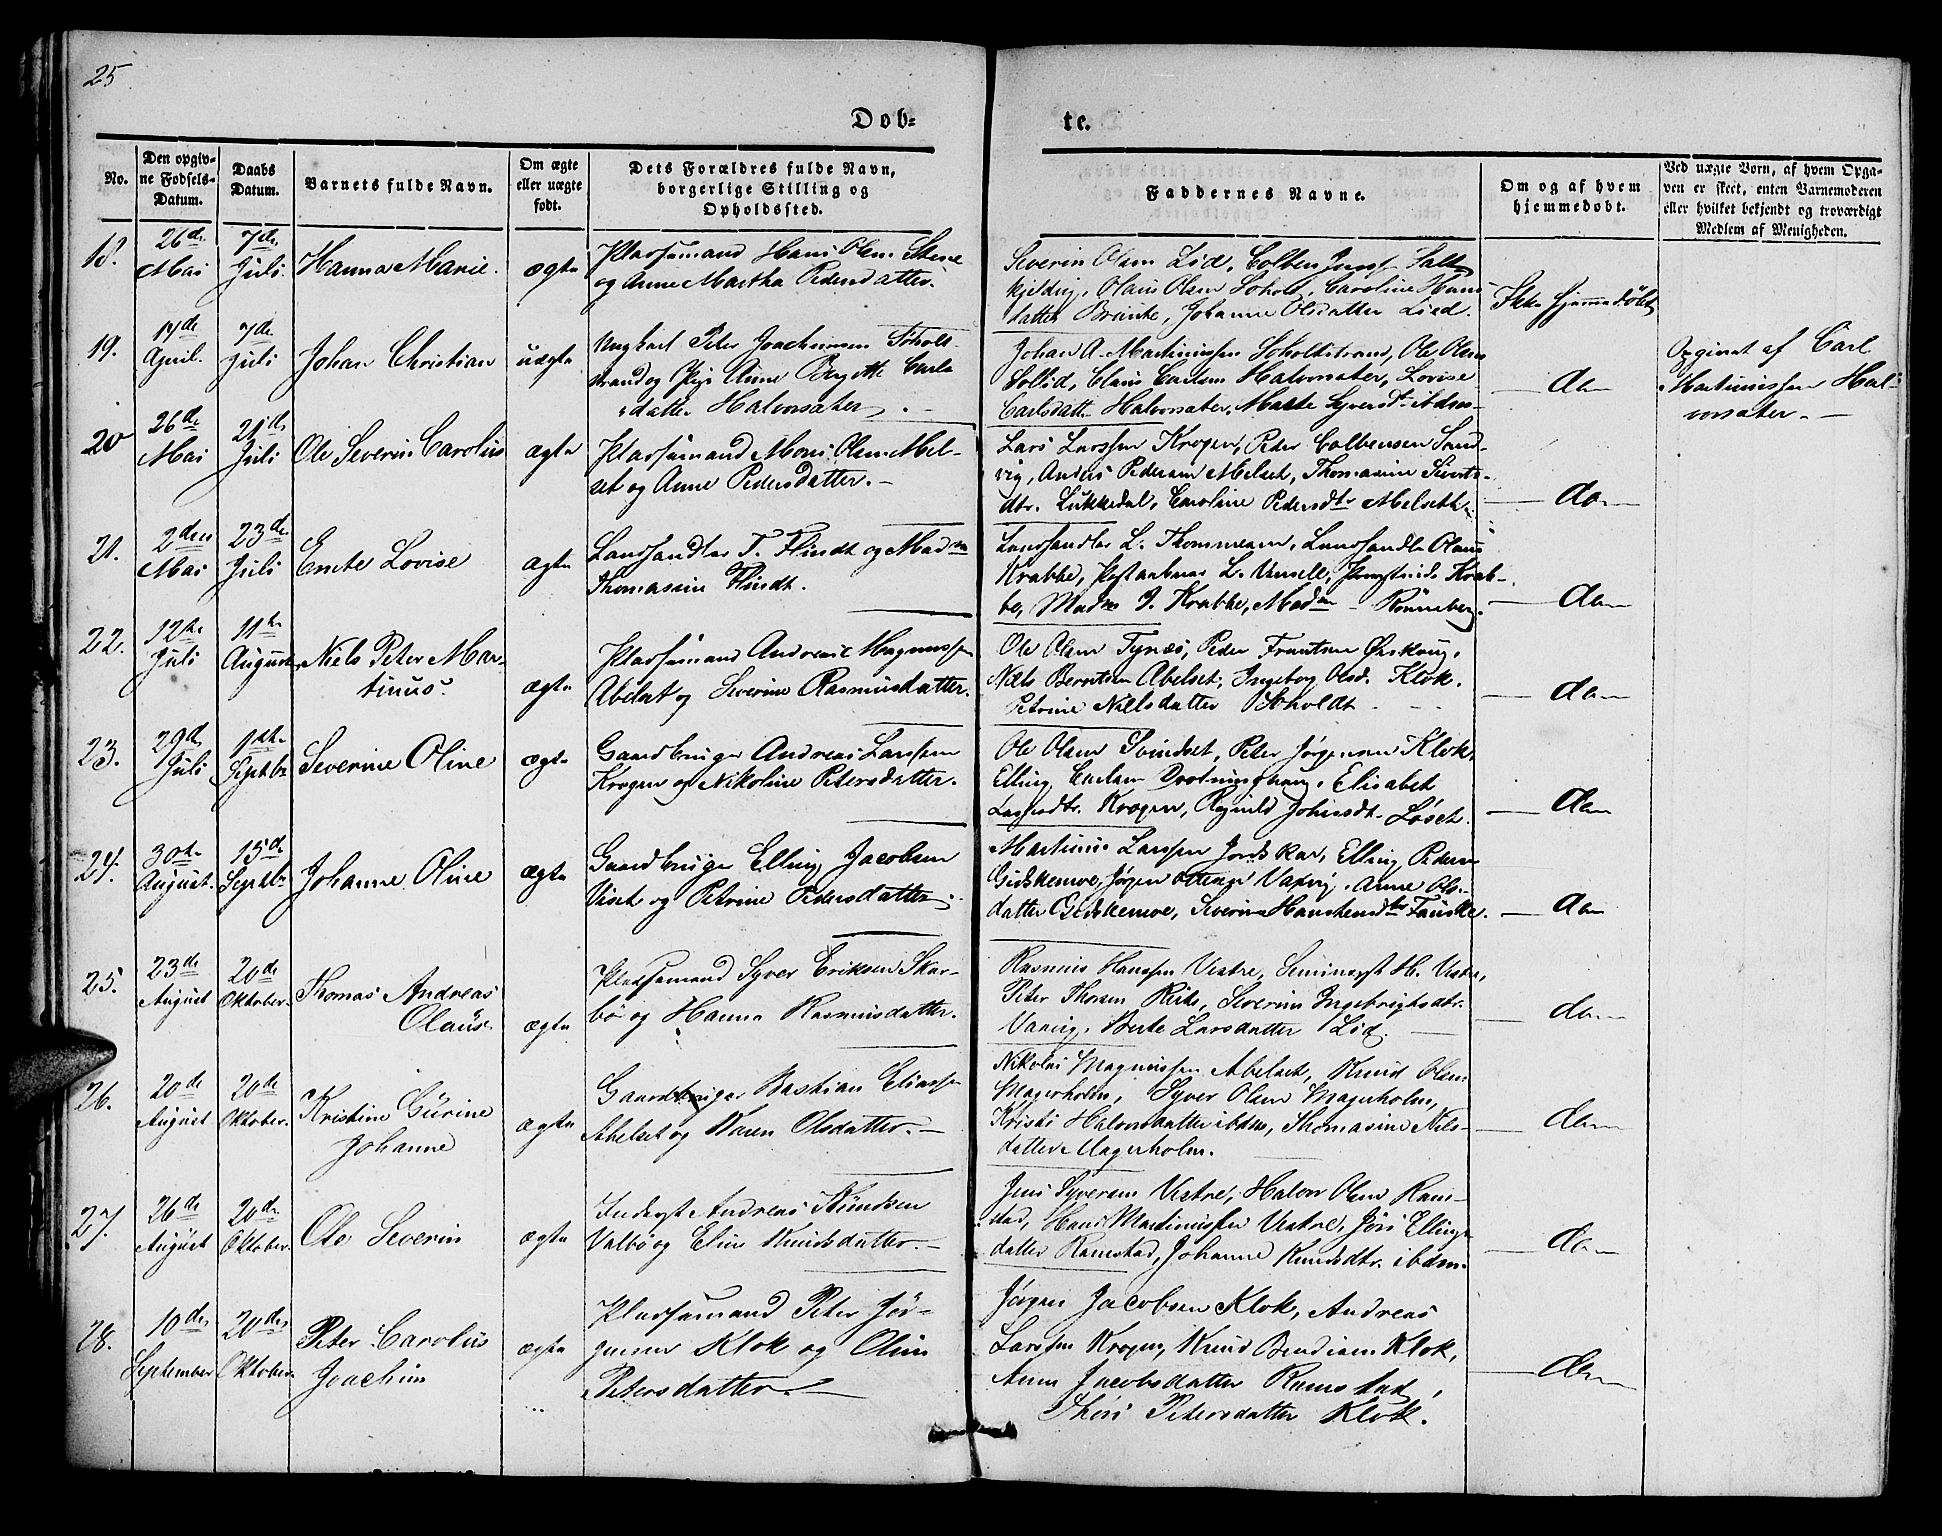 25
Døb-
te.
No.
Den opgiv-
ne Fødsels-
Datum.
Daabs
Datum.
Barnets fulde Navn.
Om ægte
eller uægte
født.
Dets Forældres fulde Navn,
borgerlige Stilling og
Opholdssted.
Faddernes Navne.
Om og af hvem
hjemmedøbt.
Ved uægte Børn, af hvem Opga-
ven er skeet, enten Barnemoderen
eller hvilket bekjendt og troværdigt
Medlem af Menigheden.
18.
26de
Mai
7de
Juli
Hanna Marie.
ægte
Pladsemand Hans Olsen
og Anne Martha Pedersdatter.
Severin Olsen Lid, Colben
Olaus Olsen Caroline Hans
datter Johanne Olsdatter Liid.
Ikke hjemmedøbt
19.
14de
April.
7de
Juli
Johan Christian
uægte
Ungkarl Peter Joachimsen Soholt-
strand og Pige Anne Bergitte Carls
datter Halvonsater.
Johan A. Martinussen Soholtstrand, Ole Olsen
Sollid, Claus Carlsen Halvonsater, Lovise
Carlsdatter Halvonsater, Marte Syversdt. ibdm
do
Opgivet af Carl
Martinussen Hal-
vonsater.
20
26de
Mai
21de
Juli
Ole Severin Carolius
ægte
Pladsemand Mons Olsen Mel-
set og Anne Pedersdatter.
Lars Larssen Krogen, Peder Colbensen Sand-
vig, Anders Pedersen Melset, Thomasine Siverts-
dtr. Lukkedal, Caroline Pedersdtr Melseth.
do
21.
2den
Mai
23de
Juli
Emte Lovise
ægte
Landhandler T. Flindt og Madm
Thomasine Flindt.
Landhandler L. Thommesen, Landhandler Olaus
Krabbe, L. Krab-
be, Madm J. Krabbe, Madm Rønneberg.
do
22.
12te
Juli
11te
August
Niels Peter Mar-
tinus.
ægte
Pladsemand Andreas Magnussen
Abelset og Severine Rasmusdatter.
Ole Olsen Tynæs, Peder Frantsen Ørskoug,
Niels Berntsen Abelset, Ingeborg Olsd. Klok.
Petrine Nielsdatter Soholdt.
do
23.
29de
Juli
1ste
Septbr
Severine Oline
ægte
Gaardbruger Andreas Larssen
Krogen og Nikoline Petersdatter.
Ole Olsen Svindset, Peter Jørgensen Klok,
Elling Carlsen Drotninghaug, Elisabet
Larsesdtr. Krogen, Ragnild Johnsdt. Løset.
do
24.
30te
August.
15de
Septbr
Johanne Oline
ægte
Gaardbruger Elling Jacobsen
Viset og Petrine Pedersdatter.
Martinus Larssen Jordskar, Elling Pedersen
Gidskemoe, Jørgen Ottesen Vaxvig, Anne Ols-
datter Gidskemoe, Severine Hanshensdtr Fauske.
do
25.
23de
August
20de
Oktober.
Thomas Andreas
Olaus.
ægte
Pladsemand Syver Eriksen Skar-
bø og Hanna Rasmusdatter.
Rasmus Hanssen Vestre, Seminarist H. Vestre,
Peter Thorsen Severine Ingebrigtsdtr.
Berte Larsdatter Lid.
do
26.
20de
August
20de
Oktober.
Kristine Gurine
Johanne
ægte
Gaardbruger Bastian Eliassen
Abelset og Karen Olsdatter.
Nikolai Magnussen Abelset, Knud Olsen
Magerholm, Syver Olsen Magerholm,
Kristi Halvorsdatter ibdm, Thomasine Niels-
datter Magerholm.
do
27.
26de
August
20de
Oktober.
Ole Severin
ægte
Inderst Andreas Knudsen
Valbø og Eline Knudsdatter.
Jens Syversen Vestre, Halvor Olsen Ram-
stad, Hans Martinussen Vestre, Jøri Ellings-
datter Ramstad, Johanne Knudsdtr. ibdm.
do
28.
10de
September
20de
Oktober
Peter Carolius
Joachim
ægte
Pladsemand Peter Jør-
gensen Klok og Oline
Petersdatter.
Jørgen Jacobsen Klok, Andreas
Larssen Krogen, Knud Bendixen Klok,
Anne Jacobsdatter Ramstad,
Thøri Petersdatter Klok.
do